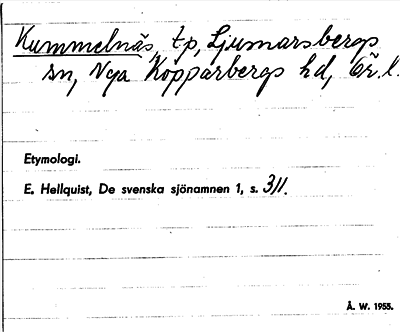 Kummelnäs, tp, Ljusnarsbergs
sn, Nya Kopparbergs hd, Ör. l.
Etymologi.
E. Hellquist, De svenska sjönamnen 1, s. 311.
Å. W. 1955.